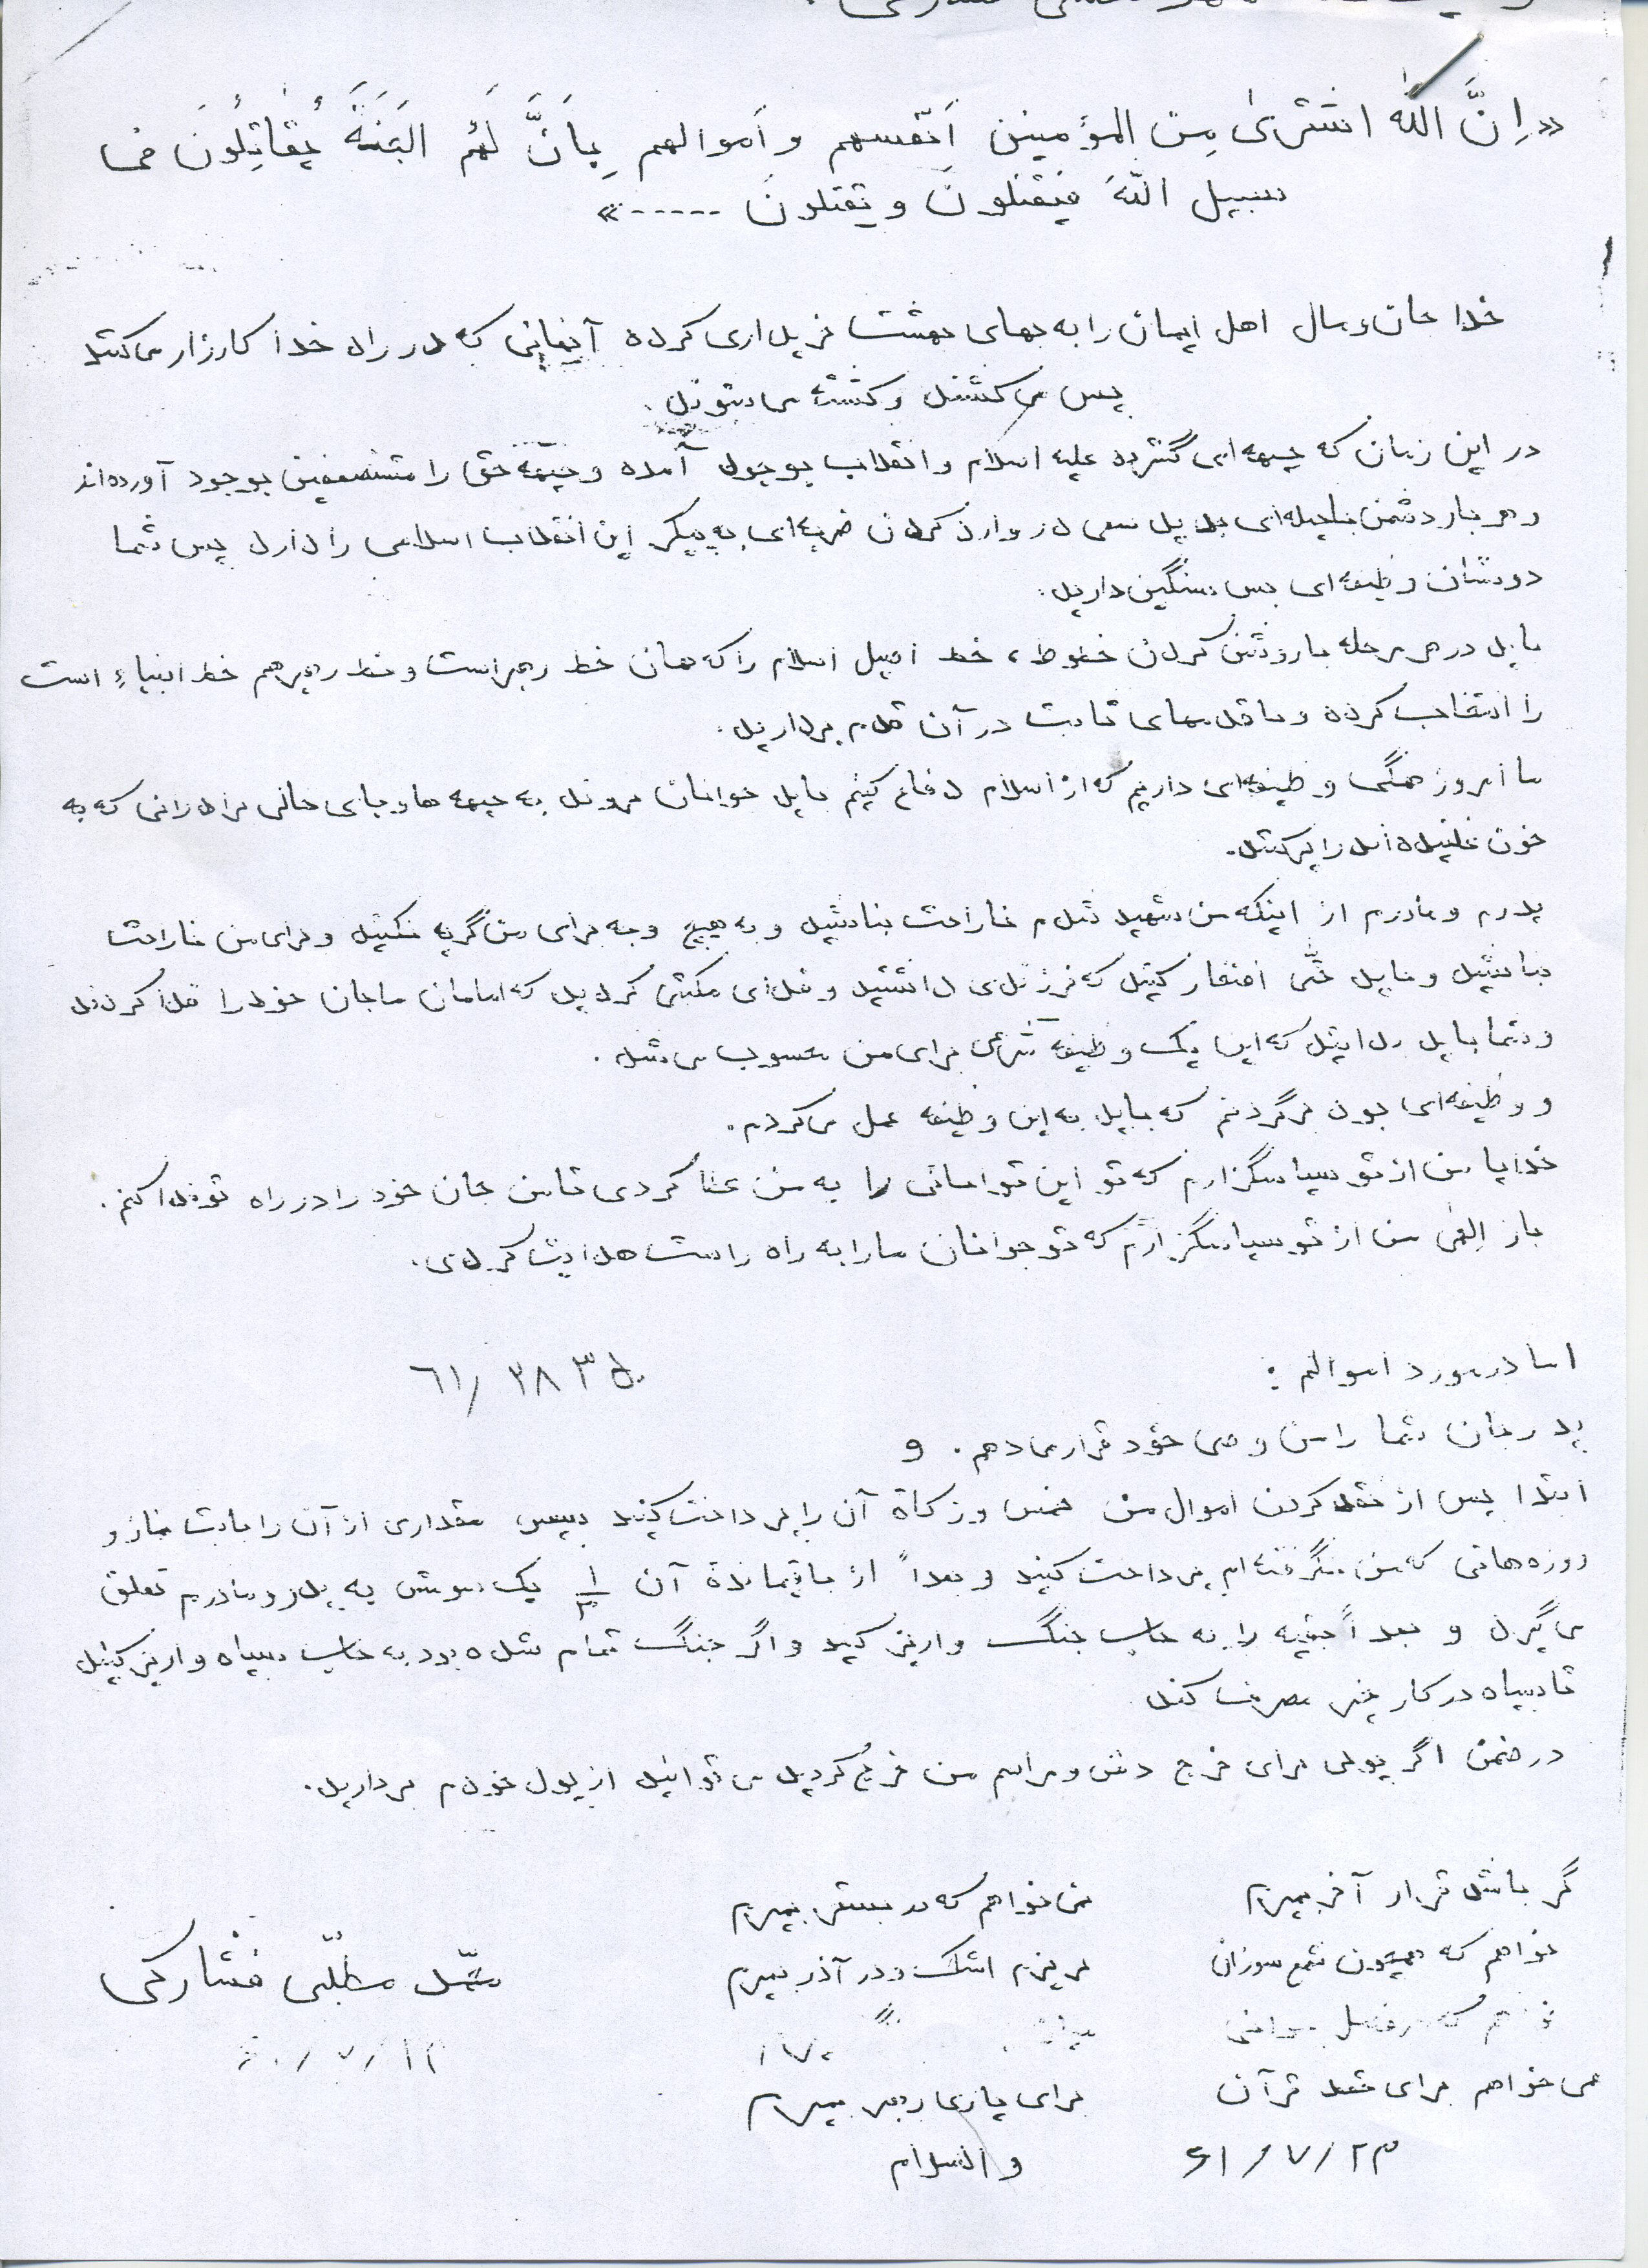 «اِنَّ اللهَ اشتریٰ مِنَ المؤمنین اَنفسهم و اَموالهم بِاَنَّ لَهُم الجَنَّةَ یُقاتِلُونَ فی
سبیل اللهَ فیقتلونَ و یقتلونَ -----»
خدا جان و مال اهل ایمان را به بهای بهشت خریداری کرده آنهایی که در راه خدا کارزار می‌کنند
پس می‌کشند و کشته می‌شوند.
در این زمان که جبهه‌ای گسترده علیه اسلام و انقلاب بوجود آمده و جبهه حق را مستضعفین بوجود آورده‌اند
و هر بار دشمن با حیله‌ای جدید سعی در وارد کردن ضربه‌ای به پیکر این انقلاب اسلامی را دارد پس شما
دوستان وظیفه‌ای بس سنگین دارید.
باید در هر مرحله با روشن کردن خطوط، خط اصیل اسلام را که همان خط رهبر است و خط رهبر هم خط انبیاء است
را انتخاب کرده و با قدمهای ثابت در آن قدم بردارید.
ما امروز همگی وظیفه‌ای داریم که از اسلام دفاع کنیم باید جوانان بروند به جبهه‌ها و جای خالی برادرانی که به
خون غلتیده‌اند را پر کنند.
پدرم و مادرم از اینکه من شهید شدم ناراحت نباشید و به هیچ وجه برای من گریه نکنید و برای من ناراحت
نباشید و باید حتّی افتخار کنید که فرزندی داشتید و فدای مکتبی کردید که امامان ما جان خود را فدا کردند
و شما باید بدانید که این یک وظیفه شرعی برای من محسوب می‌شد.
و وظیفه‌ای بود بر گردنم که باید به این وظیفه عمل می‌کردم.
خدایا من از تو سپاسگزارم که تو این توانائی را به من عطا کردی تا من جان خود را در راه تو فدا کنم.
بار اِلهی من از تو سپاسگزارم که تو جوانان ما را به راه راست هدایت کردی.
اما در مورد اموالم:
پدرجان شما را من وصی خود قرار می‌دهم. و
ابتدا پس از نقد کردن اموال من خمس و زکاة آن را پرداخت کنید سپس مقداری از آن را بابت نماز و
روزه‌هائی که من نگرفته‌ام پرداخت کنید و بعداً از باقیماندهٔ آن ۱/۳ یک سومش به پدر و مادرم تعلق
می‌گیرد و بعداً بقیه را به حساب جنگ واریز کنید و اگر جنگ تمام شده بود به حساب سپاه واریز کنید
تا سپاه در کار خیر مصرف کند
در ضمن اگر پولی برای خرج دفن و مراسم من خرج کردید می‌توانید از پول خودم بردارید.
گر باشد قرار آخر بمیرم نمی‌خواهم که در بستر بمیرم
خواهم که همچون شمع سوزان بریزم اشک و در آذر بمیرم
می‌خواهم برای حفظ قرآن برای یاری رهبر بمیرم
محمّد مطلّبی فشارکی
۶۱/۷/۲۳ والسلام